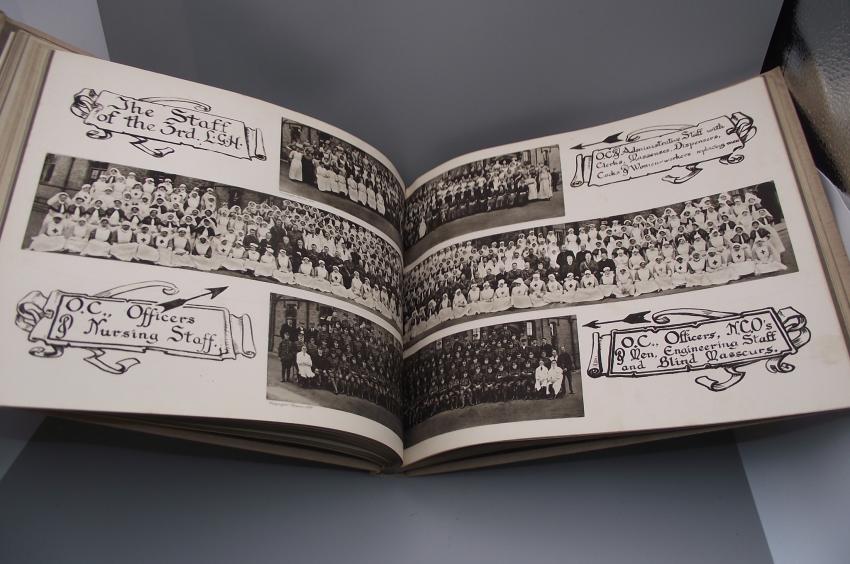 The Staff
of the 3rd. L.G.H.
O.C., Officers
& Nursing Staff.
O.C., Administrative Staff with
Clerks, Masseuses, Dispensers,
Cooks & Women-workers replacing men
O.C., Officers, N.C.O's
& Men, Engineering Staff
and Blind Masseurs.